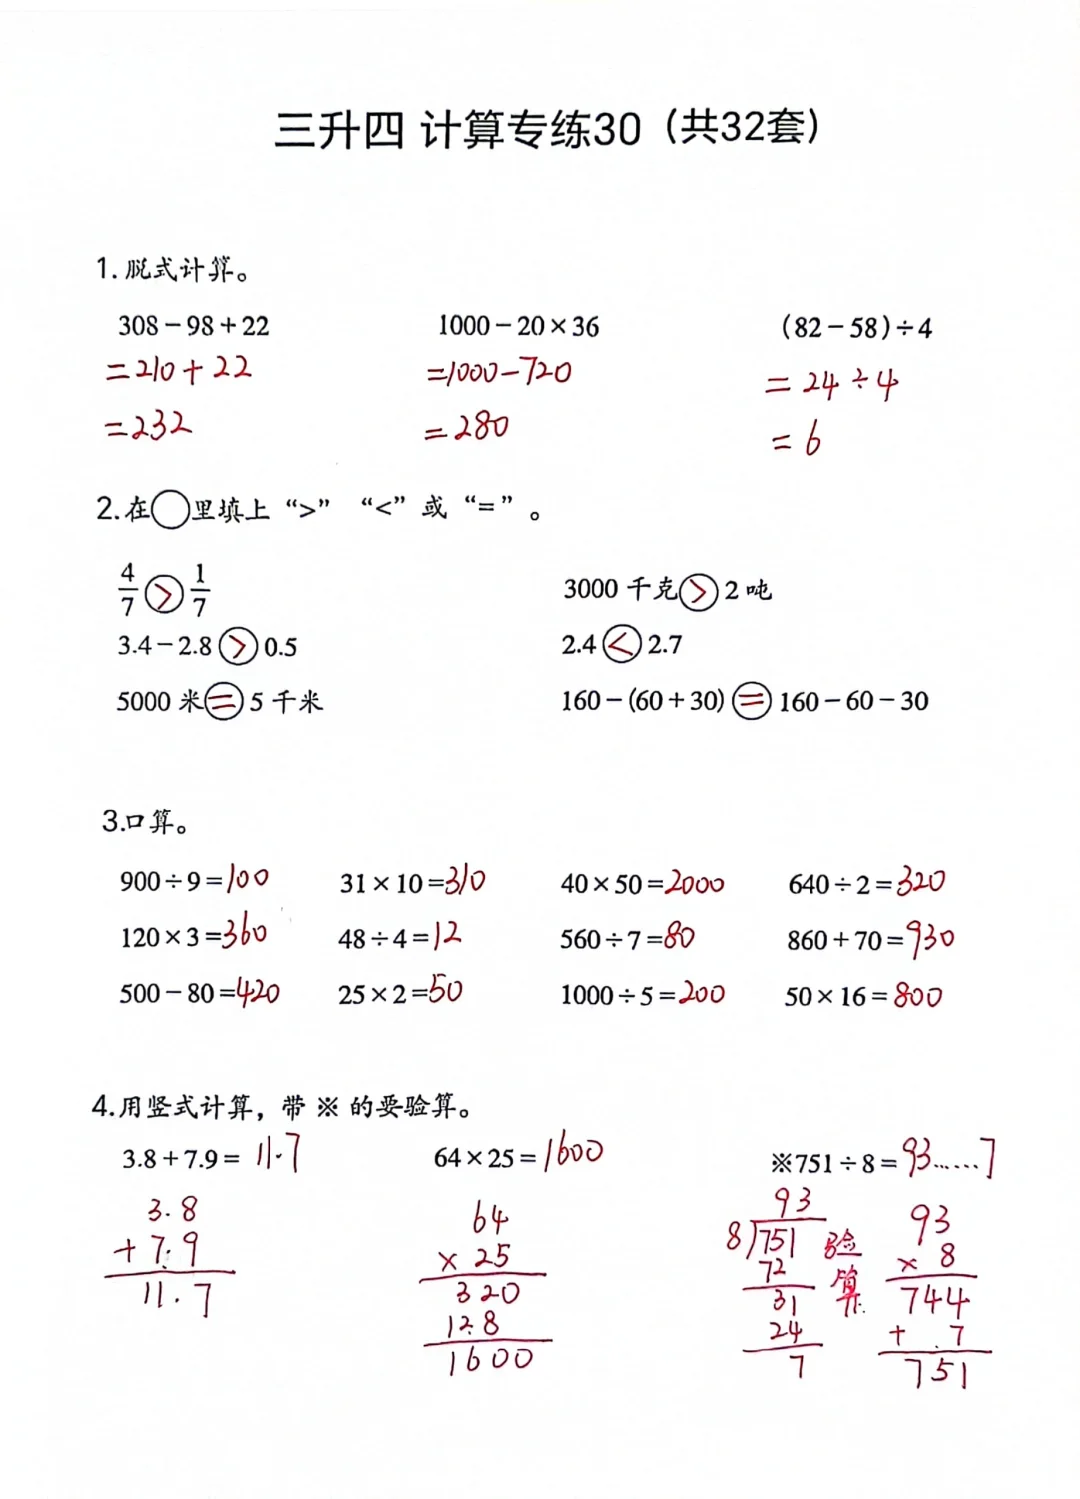 三升四 计算专练30（共32套）
1. 脱式计算。
308－98＋22 1000－20×36 (82－58)÷4
=210+22 =1000-720 =24÷4
=232 =280 =6
2.在○里填上 “>” “<” 或 “=” 。
4/7 > 1/7 3000 千克 > 2 吨
3.4－2.8 > 0.5 2.4 < 2.7
5000 米 = 5 千米 160－(60＋30) = 160－60－30
3.口算。
900÷9=100 31×10=310 40×50=2000 640÷2=320
120×3=360 48÷4=12 560÷7=80 860+70=930
500－80=420 25×2=50 1000÷5=200 50×16=800
4.用竖式计算，带 ※ 的要验算。
3.8+7.9= 11.7 64×25=1600 ※751÷8=93……7
3.8
+7.9
11.7
64
×25
320
128
1600
93
8)751
72
31
24
7
验算
93
×8
744
+7
751